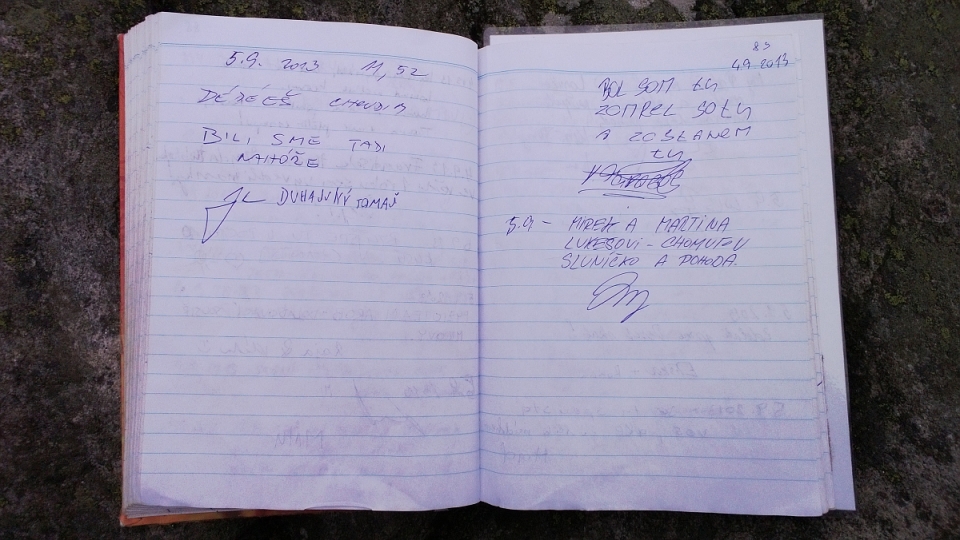 5.9. 2013 11,52
DÉŽÉEŠ CHRUDIM
BILI SME TADI
NAHÓŽE
DUHAJNKÝ TOMAŠ
83
4.9.2013
BOL SOM TU
ZOMREL SOTU
A ZOSTANEM
TU
5.9 - MIREK A MARTINA
LUKEŠOVI - CHOMUTOV
SLUNÍČKO A POHODA.